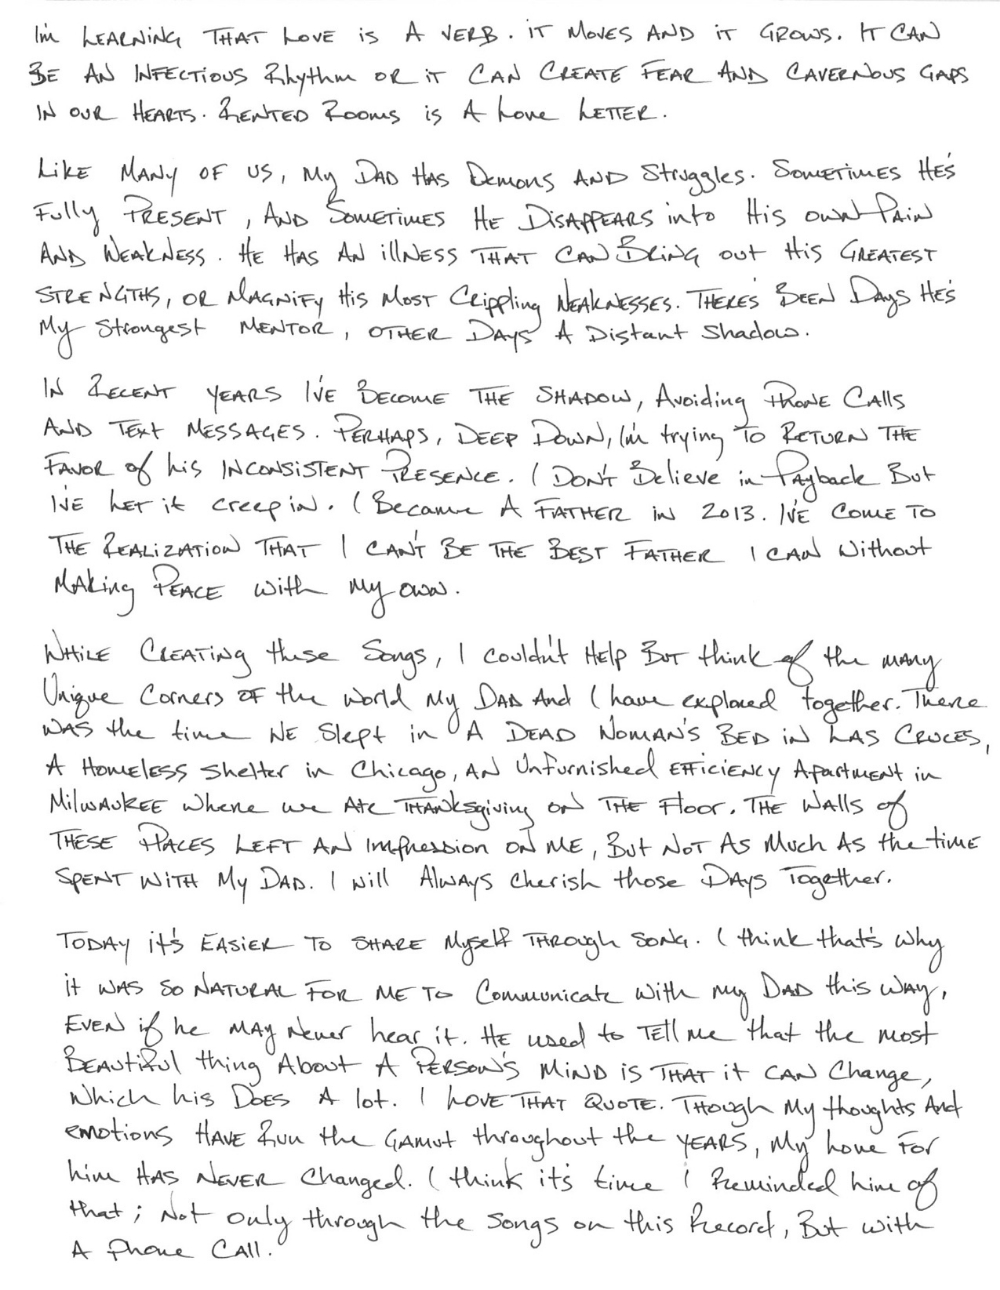 I'm LEARNING THAT LOVE is A VERB. iT MOVES AND iT GROWS. IT CAN
BE AN INFECTIOUS Rhythm OR iT CAN CREATE FEAR AND CAVERNOUS GAPS
IN OUR HEARTS. RENTED ROOMS is A Love LETTER.
LikE MANY OF US, My DAD HAS Demons AND Struggles. SOMETIMES HE'S
Fully PRESENT, AND SOMETIMES HE DISAPPEARS into His own PAiN
AND WEAKNESS. HE HAS AN illNESS THAT CAN BRiNG out His GREATEST
STRENGTHS, OR MAGNiFY His MOST CRippling WEAKNESSES. THERE'S BEEN Days HE'S
My Strongest MENTOR, OTHER DAYS A Distant Shadow.
IN RECENT YEARS I'VE BECOME THE SHADOW, Avoiding PHONE CALLS
AND TEXT MESSAGES. PERHAPS, DEEP DOWN, I'm trying TO RETURN THE
FAVOR of his INCONSISTENT PRESENCE. I DON'T Believe in Payback But
I'VE LET it creep in. I Became A FATHER iN 2013. I'VE COME TO
THE REALIZATION THAT I CAN'T BE THE BEST FATHER I CAN without
MAKing PEACE with My own.
WHILE CREATING these Songs, I couldn't HElp BUT think of the MANY
Unique Corners OF the world My DAD And I have explored together. There
WAS the time WE Slept in A DEAD WOMAN'S BED iN LAS CRUCES,
A HOMELESS shelter in Chicago, AN Unfurnished EFFiciENCY Apartment in
MilwAUKEE where we Ate THANKsgiving ON THE Floor. THE WAlls of
THESE PLACES LEFT AN impression ON ME, But NOT AS Much As the time
SPENT WITH My DAD. I will Always cherish those DAYS Together.
TODAY it's EASIER TO SHARE Myself THROUGH SONG. I think that's why
it WAS SO NATURAL FOR ME TO Communicate with my DAD this WAY,
EVEN if he MAY Never hear it. HE used to TEll me that the most
BEAUTiful thing About A PERSON'S MiND is THAT it CAN Change,
which his DOES A lot. I LOVE THAT QUOTE. THOUGH My thoughts And
emotions HAVE RUN the GAMUT throughout the YEARS, My love For
him HAS NEVER Changed. I think it's time I Reminded him of
that; Not only through the songs on this Record, But with
A Phone CALL.